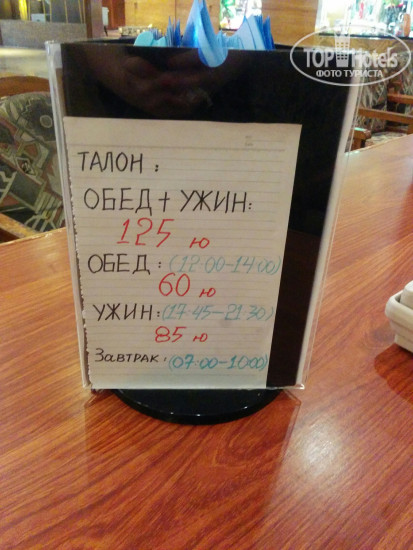 TOPHotels
ФОТО ТУРИСТА
ТАЛОН :
ОБЕД + УЖИН:
125 ю
ОБЕД : (12:00-14:00)
60 ю
УЖИН: (17:45-21:30)
85 ю
ЗАВТРАК: (07:00-10:00)